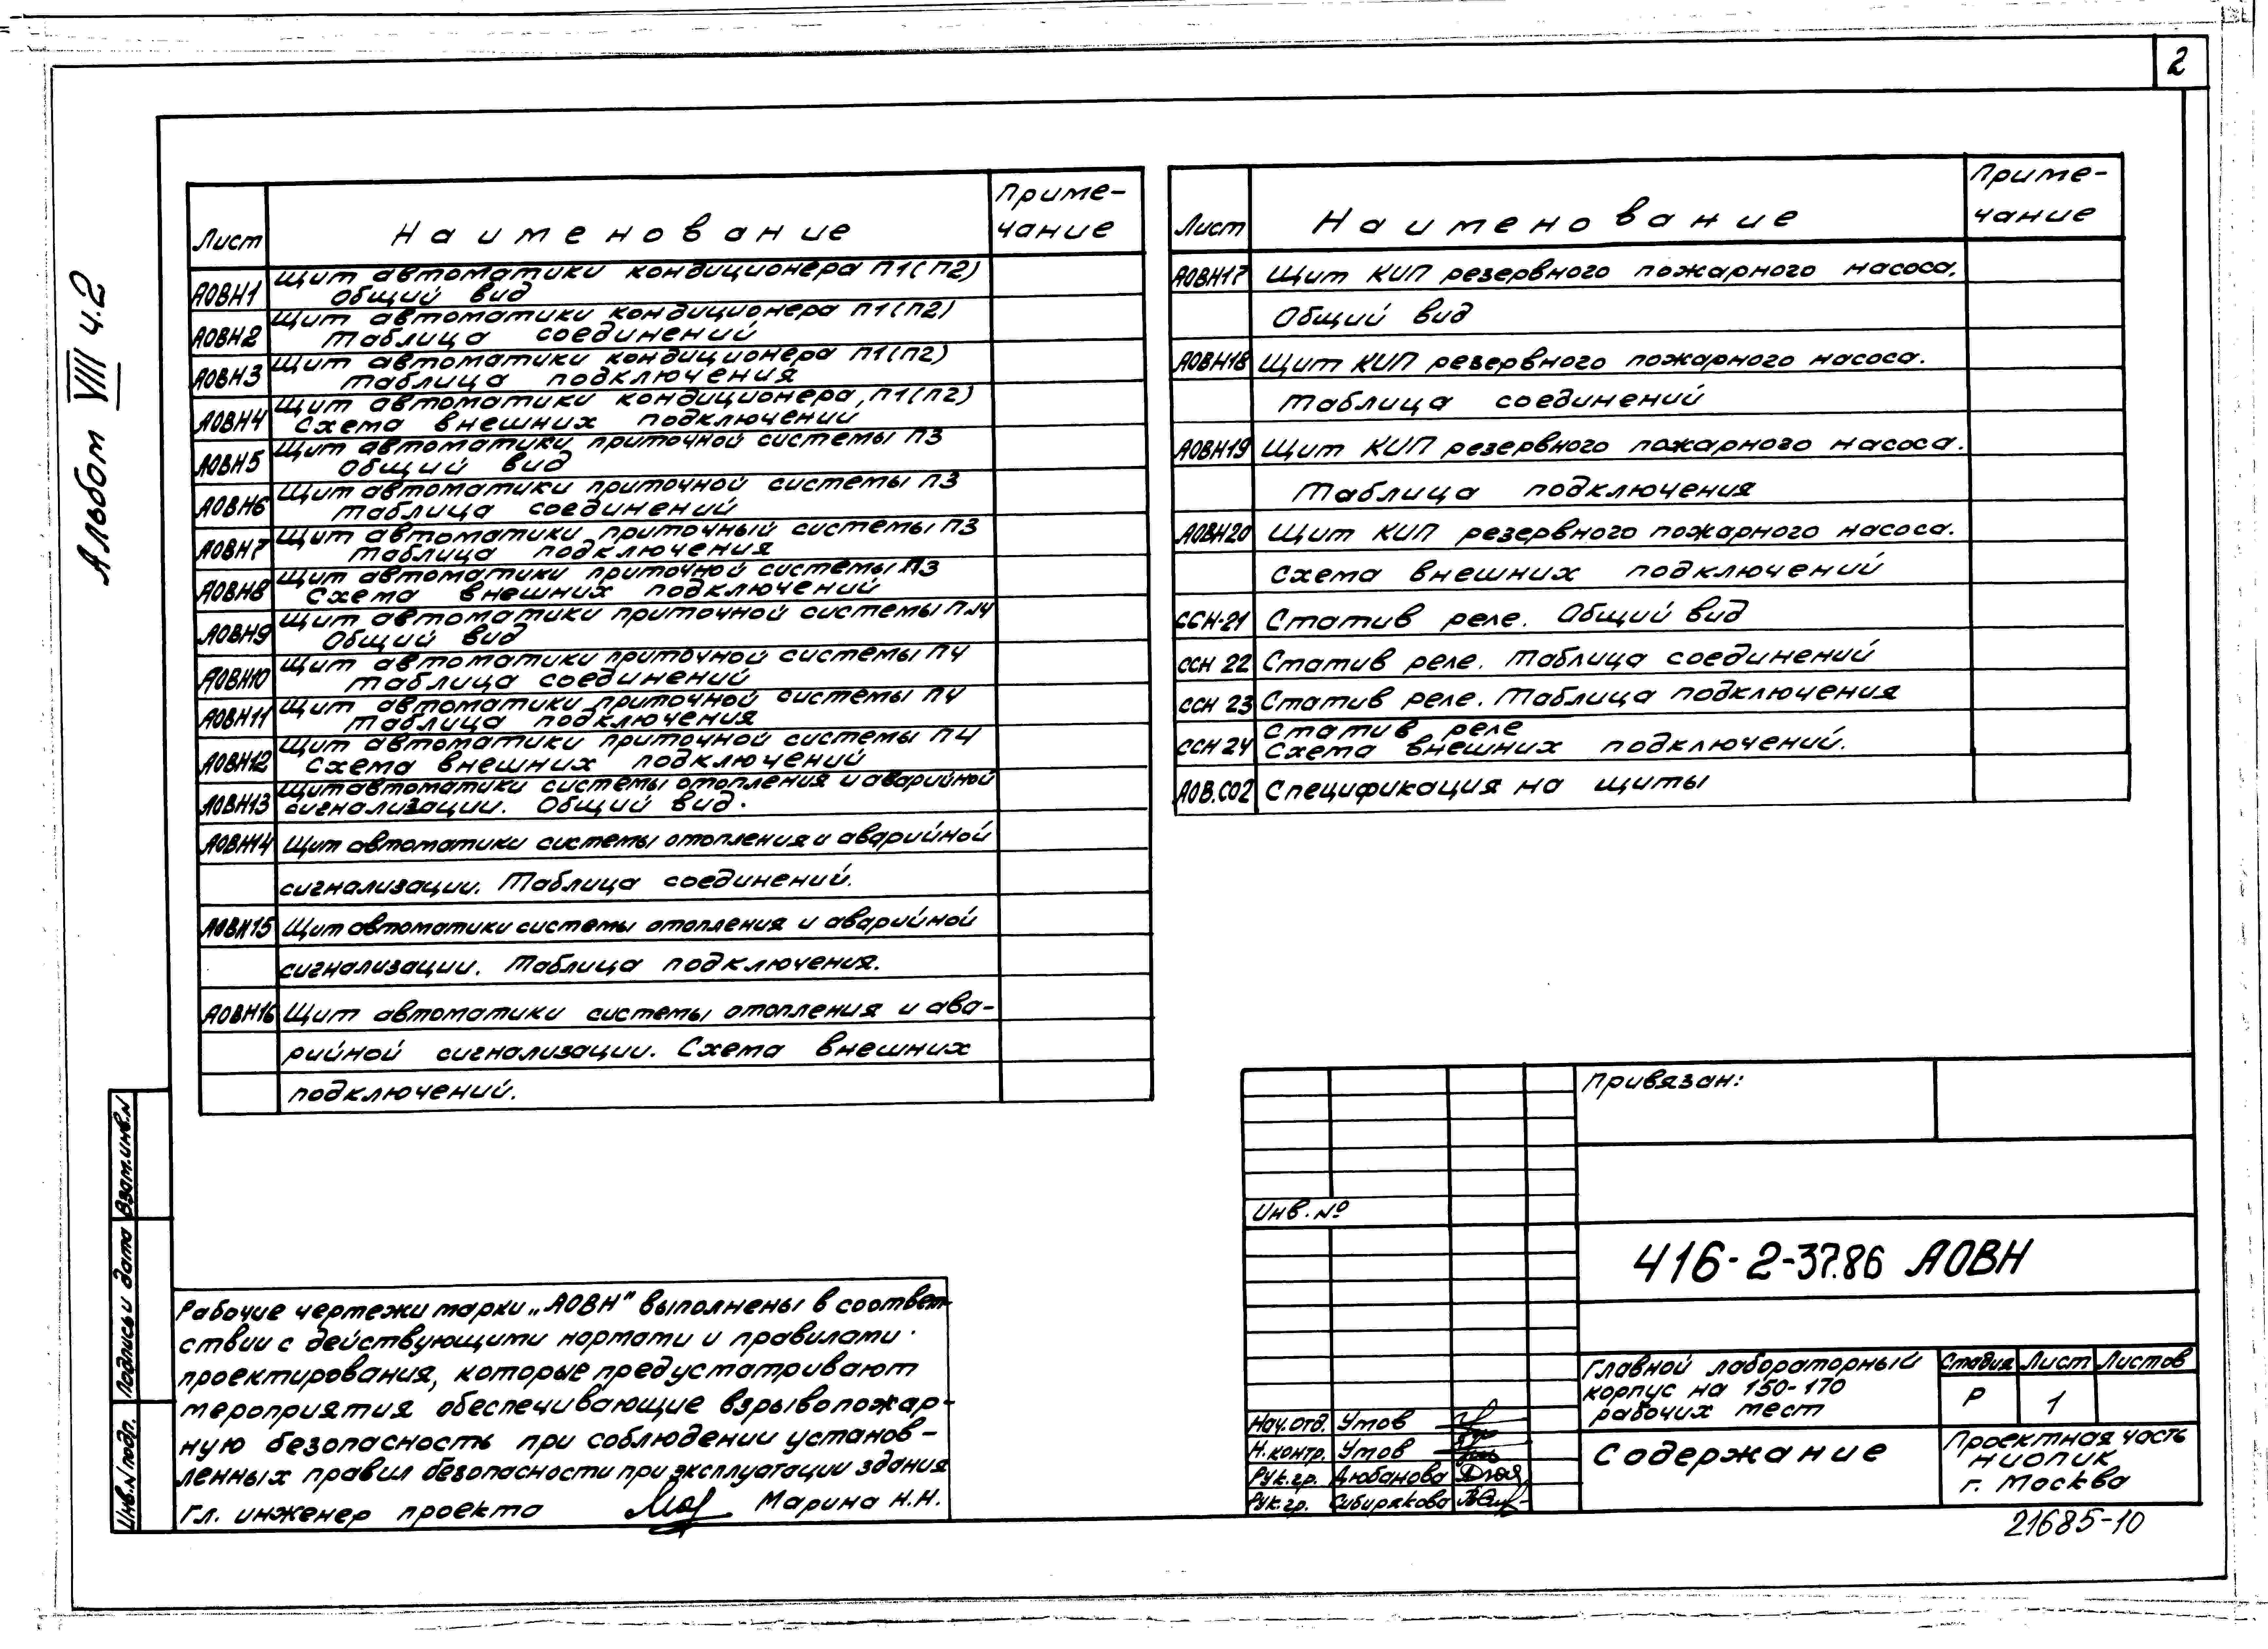 2
Альбом VIII ч.2
Лист Наименование Приме-
чание
АОВН1 Щит автоматики кондиционера П1(П2)
Общий вид
АОВН2 Щит автоматики кондиционера П1(П2)
Таблица соединений
АОВН3 Щит автоматики кондиционера П1(П2)
Таблица подключения
АОВН4 Щит автоматики кондиционера, П1(П2)
Схема внешних подключений
АОВН5 Щит автоматики приточной системы П3
Общий вид
АОВН6 Щит автоматики приточной системы П3
Таблица соединений
АОВН7 Щит автоматики приточный системы П3
Таблица подключения
АОВН8 Щит автоматики приточной системы П3
Схема внешних подключений
АОВН9 Щит автоматики приточной системы П4
Общий вид
АОВН10 Щит автоматики приточной системы П4
Таблица соединений
АОВН11 Щит автоматики приточной системы П4
Таблица подключения
АОВН12 Щит автоматики приточной системы П4
Схема внешних подключений
АОВН13 Щит автоматики системы отопления и аварийной
сигнализации. Общий вид.
АОВН14 Щит автоматики системы отопления и аварийной
сигнализации. Таблица соединений.
АОВН15 Щит автоматики системы отопления и аварийной
сигнализации. Таблица подключения.
АОВН16 Щит автоматики системы отопления и ава-
рийной сигнализации. Схема внешних
подключений.
Лист Наименование Приме-
чание
АОВН17 Щит КИП резервного пожарного насоса.
Общий вид
АОВН18 Щит КИП резервного пожарного насоса.
Таблица соединений
АОВН19 Щит КИП резервного пожарного насоса.
Таблица подключения
АОВН20 Щит КИП резервного пожарного насоса.
Схема внешних подключений
ССН-21 Статив реле. Общий вид
ССН 22 Статив реле. Таблица соединений
ССН 23 Статив реле. Таблица подключения
ССН 24 Статив реле
Схема внешних подключений.
АОВ.СО2 Спецификация на щиты
Рабочие чертежи марки „АОВН" выполнены в соответ-
ствии с действующими нормами и правилами
проектирования, которые предусматривают
мероприятия обеспечивающие взрывопожар-
ную безопасность при соблюдении установ-
ленных правил безопасности при эксплуатации здания
Гл. инженер проекта Марина Н.Н.
Взам.инв.N
Подпись и дата
Инв.N подл.
Привязан:
Инв. №
416-2-37.86 АОВН
Главной лабораторный
корпус на 150-170
рабочих мест
Стадия Лист Листов
Р 1
Нач.отд. Утов
Н.контр. Утов
Рук.гр. Дюбанова
Рук.гр. Сибирякова
Содержание
Проектная часть
НИОПИК
г. Москва
21685-10